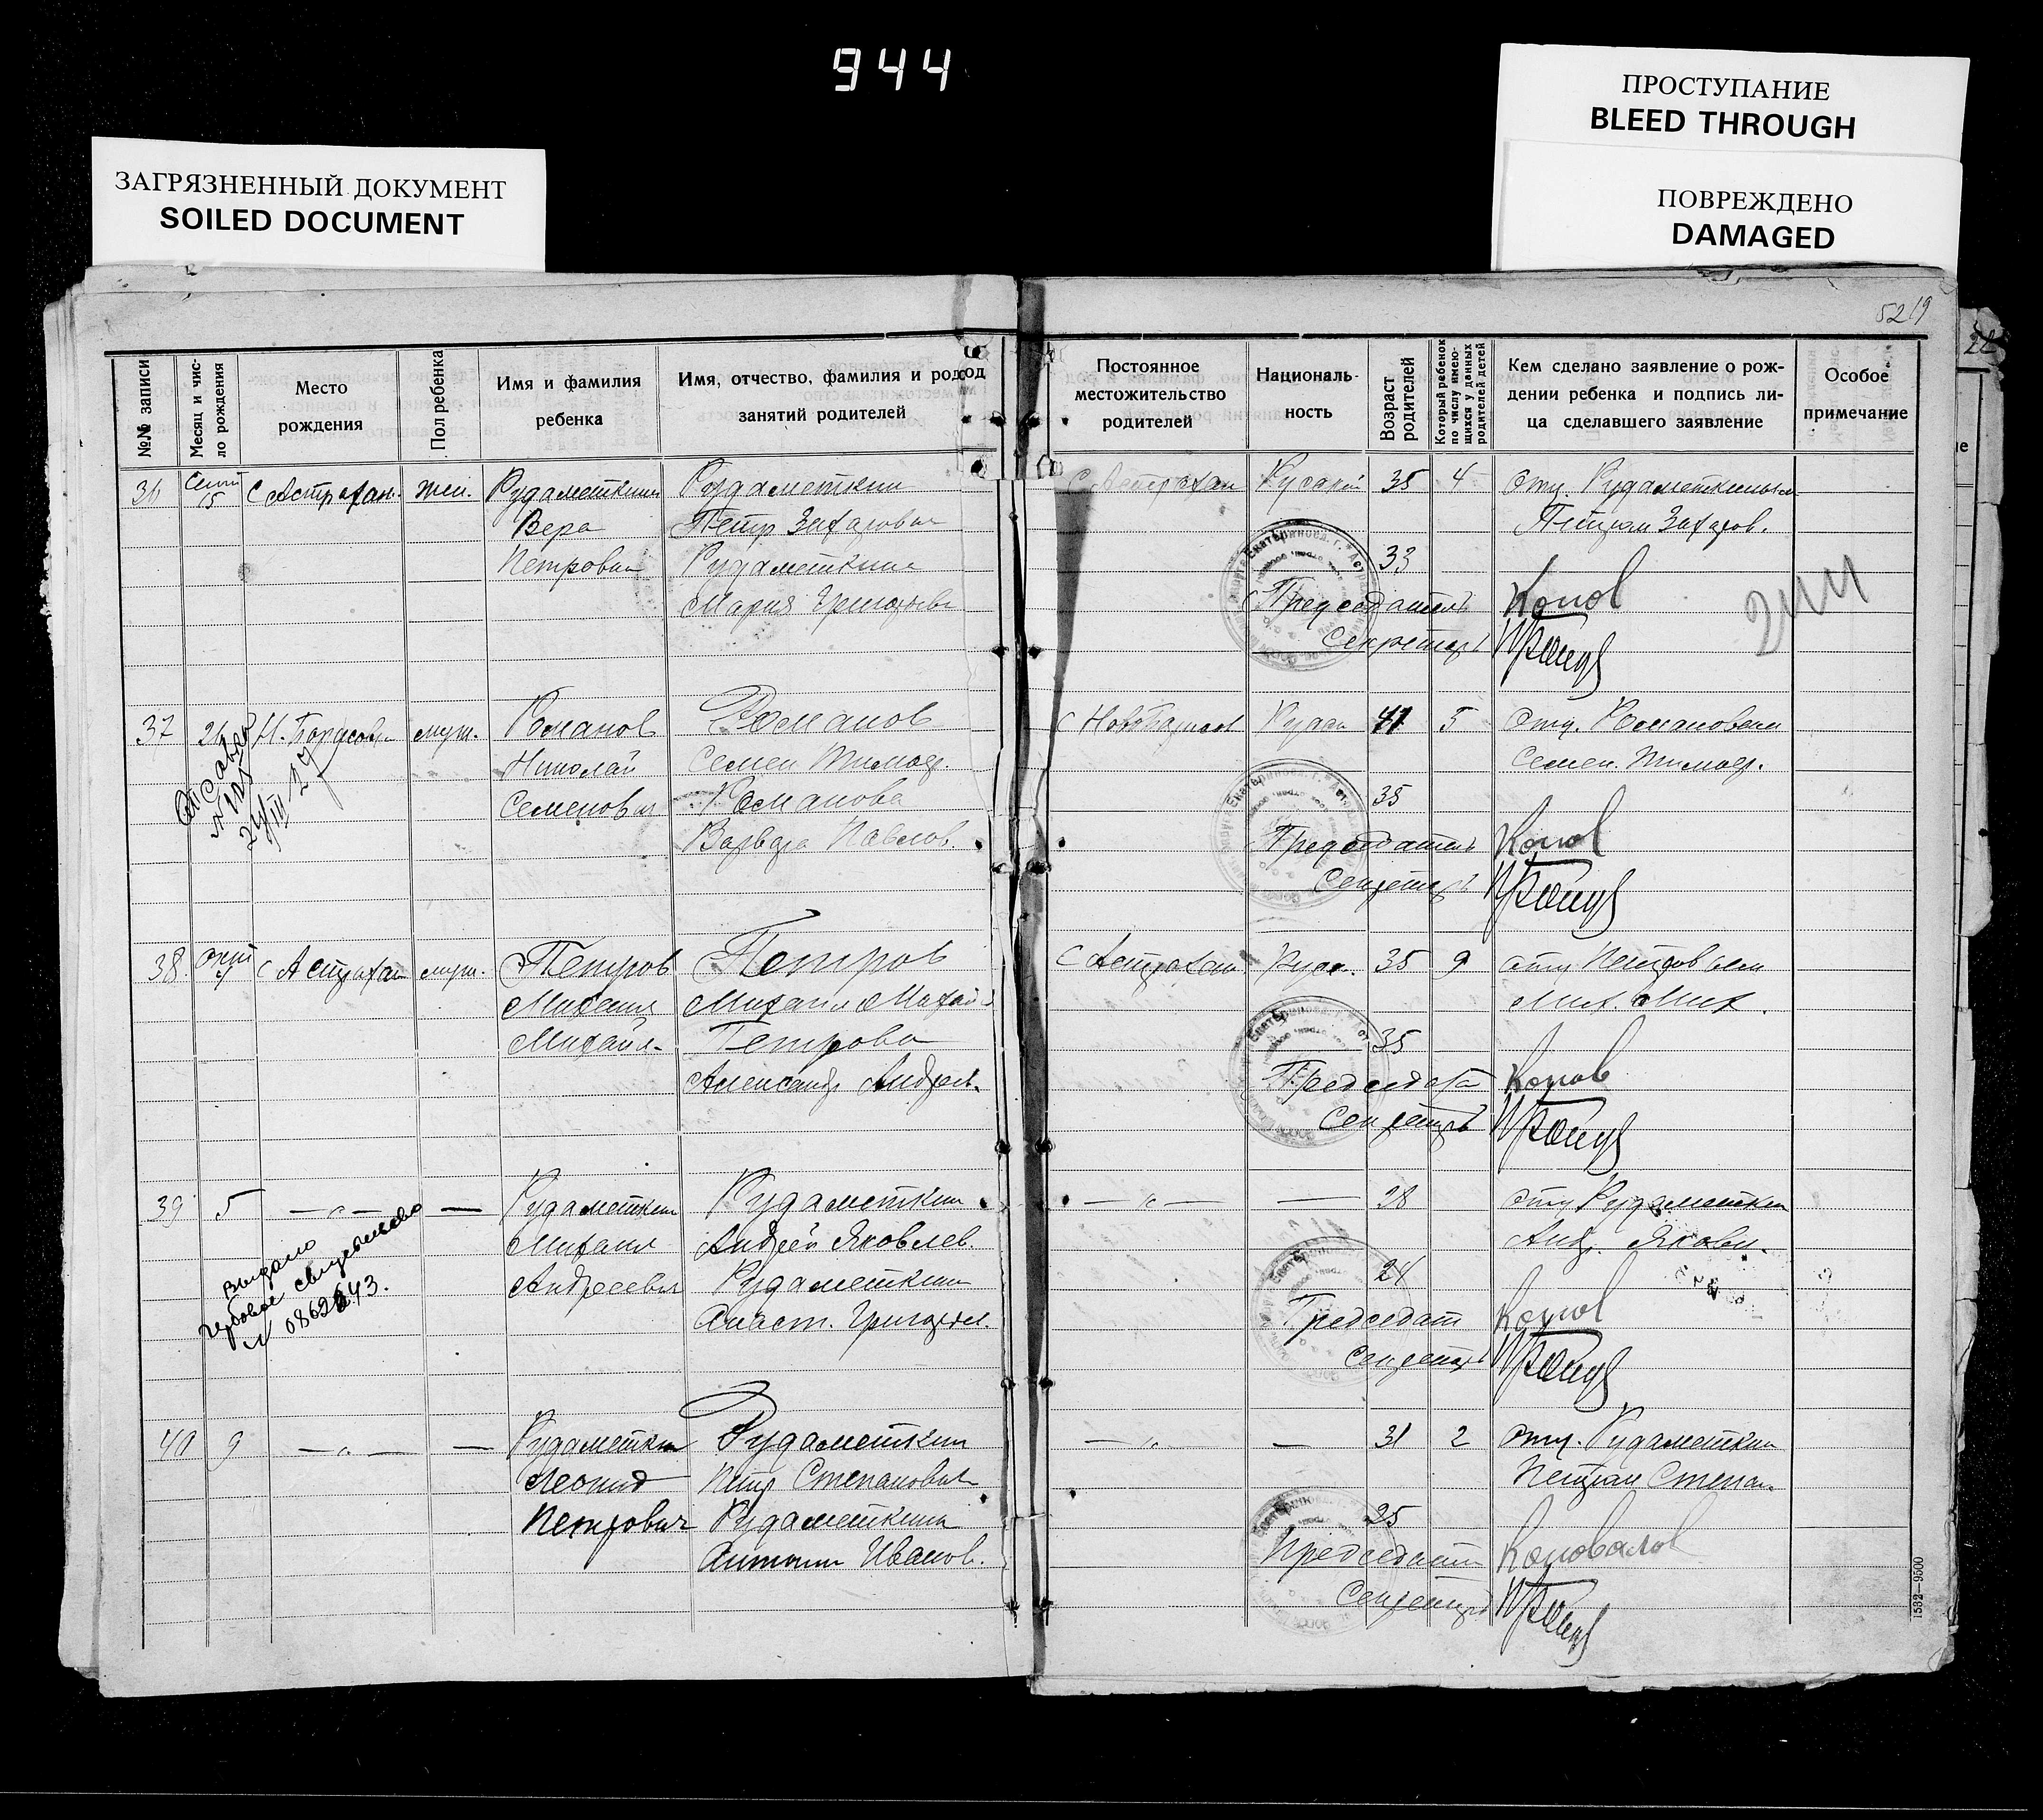 944
ЗАГРЯЗНЕННЫЙ ДОКУМЕНТ
SOILED DOCUMENT
ПРОСТУПАНИЕ
BLEED THROUGH
ПОВРЕЖДЕНО
DAMAGED
5219
22
№№ записи
Месяц и чис-
ло рождения
Место
рождения
Пол ребенка
Имя и фамилия
ребенка
Имя, отчество, фамилия и род
занятий родителей
Постоянное
местожительство
родителей
Националь-
ность
Возраст
родителей
Который ребенок
по числу имею-
щихся у данных
родителей детей
Кем сделано заявление о рож-
дении ребенка и подпись ли-
ца сделавшего заявление
Особое
примечание
36 15 с Астрахан. жен. Рудаметкина Рудаметкин с Астрахан Русский 35 4 отц. Рудаметкиным
Вера Петр Захарович Петром Захаров.
Петровна Рудаметкина 33
Мария Григорьев Председатель Конов
Секретарь
244
37 26 Н. Борисовка муж. Романов Романов 41 5 отц. Романовым
Николай Семен Тимоф. Семен. Тимоф.
Семенович Романова 35
Варвара Павлов. Председатель Конов
Секретарь
38 окт 4 с Астрахан муж. Петров Петров с Астрахан Русс. 35 9 отц Петровым
Михаил Михаил Михайл Мих. Мих.
Михайл. Петрова 35
Александр Андреев. Председат Конов
Секретарь
39 5 — " — — Рудаметкин Рудаметкин — " — — 28 отц Рудаметкин
Михаил Андрей Яковлев. Анд. Яковл.
Андреевич Рудаметкина 24
Анаст. Григорьев. Председат Конов
Секретарь
Выдано
гербовое свидетельство
N
40 9 — " — — Рудаметкин Рудаметкин — " — — 31 2 отц. Рудаметкин
Леонид Петр Степанович Петром Степан.
Петрович Рудаметкина 25
Иванов. Председат Коновалов
Секретарь
1532—9500